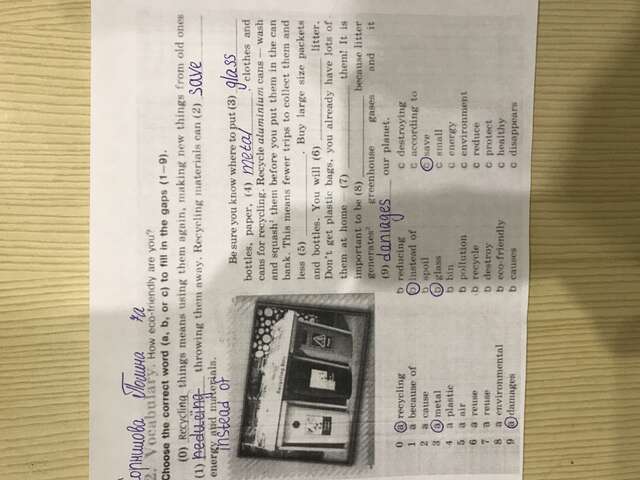 орнишова Полина 7а
2. Vocabulary. How eco-friendly are you?
Choose the correct word (a, b, or c) to fill in the gaps (1–9).
(0) Recycling things means using them again, making new things from old ones
(1) reducing throwing them away. Recycling materials can (2) save
energy and materials.
instead of
Be sure you know where to put (3) glass
bottles, paper, (4) metal, clothes and
cans for recycling. Recycle aluminium cans — wash
and squash¹ them before you put them in the can
bank. This means fewer trips to collect them and
less (5) ____________. Buy large size packets
and bottles. You will (6) ____________ litter.
Don't get plastic bags, you already have lots of
them at home — (7) ____________ them! It is
important to be (8) ____________ because litter
generates² greenhouse gases and it
(9) damages our planet.
Recycling Bins
0 a recycling b reducing c destroying
1 a because of b instead of c according to
2 a cause b spoil c save
3 a metal b glass c small
4 a plastic b bin c energy
5 a air b pollution c environment
6 a reuse b recycle c reduce
7 a reuse b destroy c protect
8 a environmental b eco-friendly c healthy
9 a damages b causes c disappears